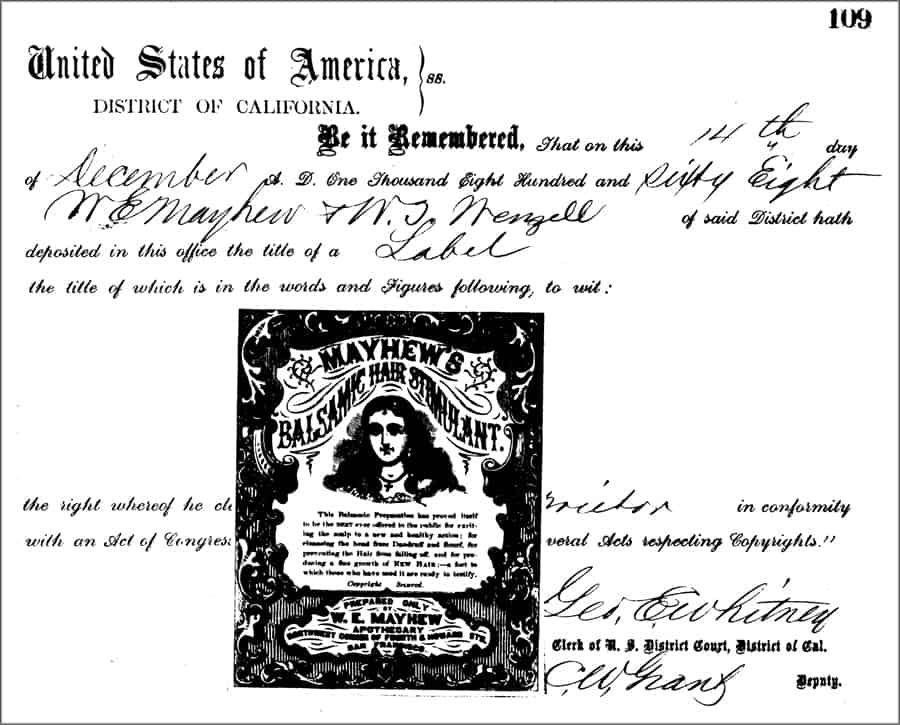 109
United States of America, } ss.
DISTRICT OF CALIFORNIA.
Be it Remembered, That on this 14th day
of December A. D. One Thousand Eight Hundred and Sixty Eight
W. E. Mayhew & W. T. Wenzell of said District hath
deposited in this office the title of a Label
the title of which is in the words and Figures following, to wit:
MAYHEW'S
BALSAMIC HAIR STIMULANT.
This Balsamic Preparation has proved itself
to be the BEST ever offered to the public for excit-
ing the scalp to a new and healthy action; for
cleansing the head from Dandruff and Scurf, for
preventing the Hair from falling off, and for pro-
ducing a fine growth of NEW HAIR:—a fact to
which those who have used it are ready to testify.
Copyright Secured.
PREPARED ONLY
BY
W. E. MAYHEW
APOTHECARY
NORTHWEST CORNER OF FOURTH & HOWARD STS.
SAN FRANCISCO
the right whereof he cl rietor in conformity
with an Act of Congress veral Acts respecting Copyrights."
Geo. E Whitney
Clerk of U. S. District Court, District of Cal.
C. W. Grant
Deputy.